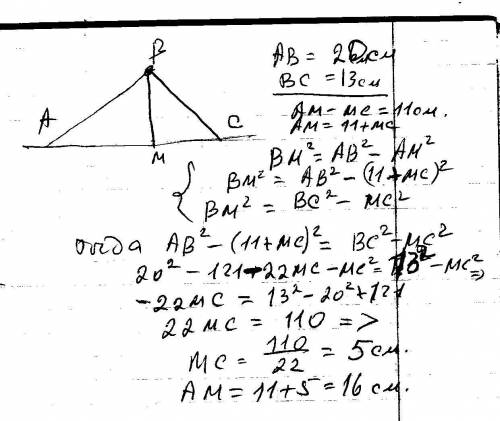 B
A
C
M
AB = 20см
BC = 13см
AM - MC = 11см.
AM = 11+MC
BM² = AB² - AM²
BM² = AB² - (11+MC)²
BM² = BC² - MC²
Отсюда AB² - (11+MC)² = BC² - MC²
20² - 121 - 22MC - MC² = 13² - MC² =>
-22MC = 13² - 20² + 121
22MC = 110 =>
MC = 110/22 = 5см.
AM = 11+5 = 16 см.